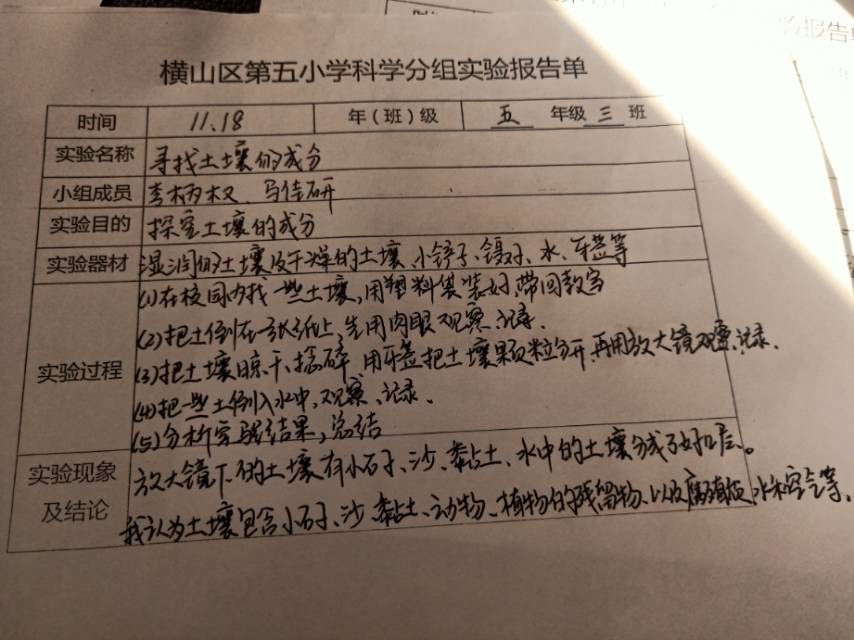 横山区第五小学科学分组实验报告单
时间 11.18 年(班)级 五 年级 三 班
实验名称 寻找土壤的成分
小组成员 李柄权、马佳研
实验目的 探究土壤的成分
实验器材 湿润的土壤及干燥的土壤、小铲子、镊子、水、牙签等
(1)在校园内找一些土壤,用塑料袋装好,带回教室
(2)把土倒在一张纸上,先用肉眼观察、记录.
实验过程 (3)把土壤晾干、捻碎,用牙签把土壤颗粒分开,再用放大镜观察、记录.
(4)把一些土倒入水中,观察、记录.
(5)分析实验结果,总结
实验现象 放大镜下的土壤有小石子、沙、黏土、水中的土壤分成了好几层。
及结论 我认为土壤包含小石子、沙、黏土、动物、植物的残留物、以及腐殖质、水和空气等.
报告单